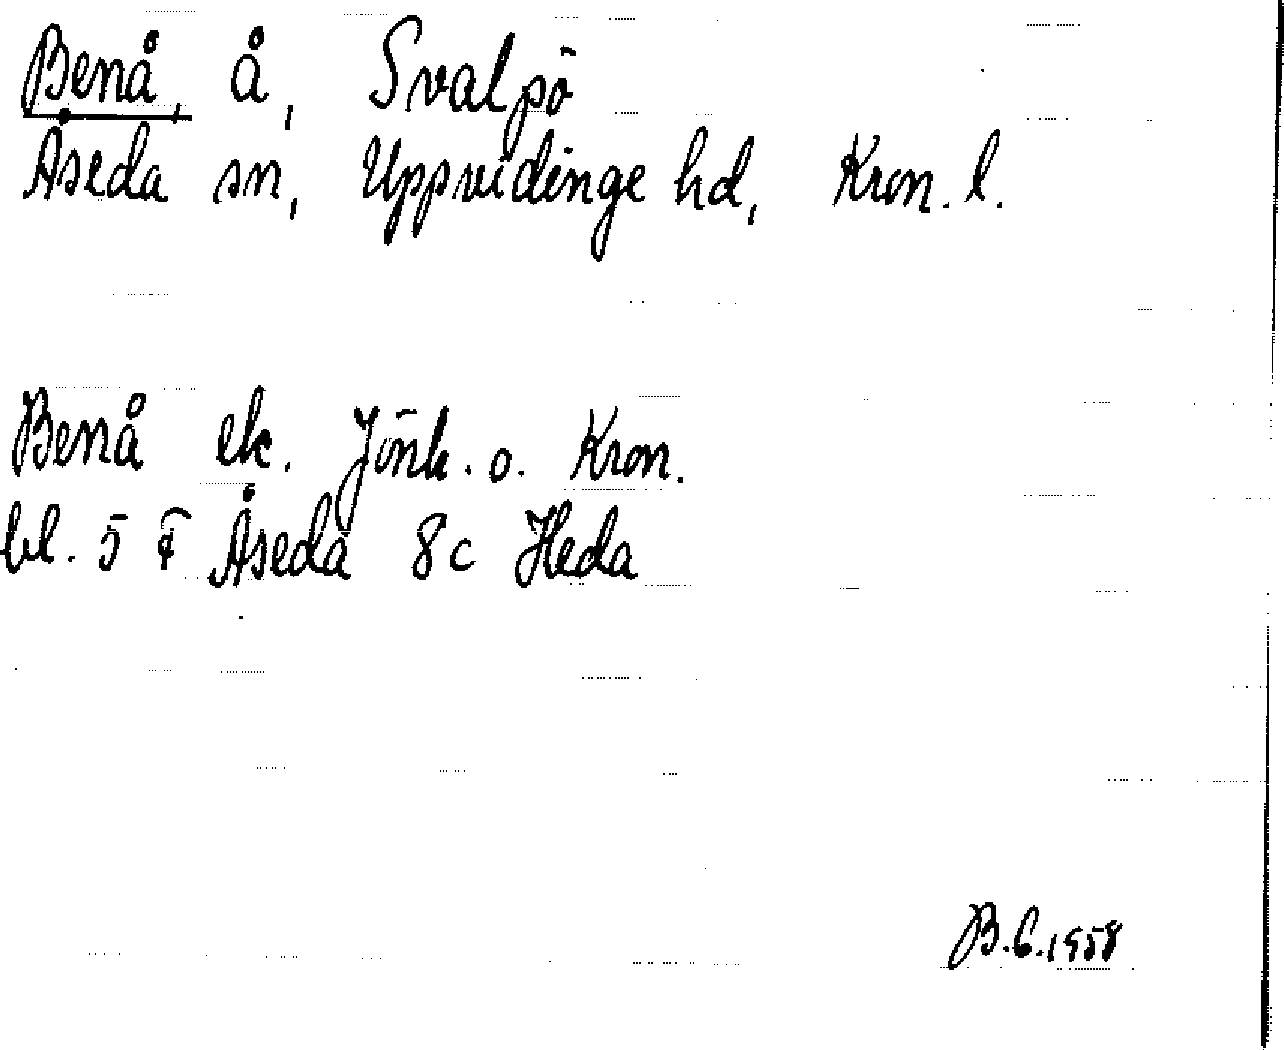 Benå, å, Svalpö
Åseda sn, Uppvidinge hd, Kron. l.
Benå ek. Jönk. o. Kron.
bl. 5 F Åseda 8c Heda
B.C.1958